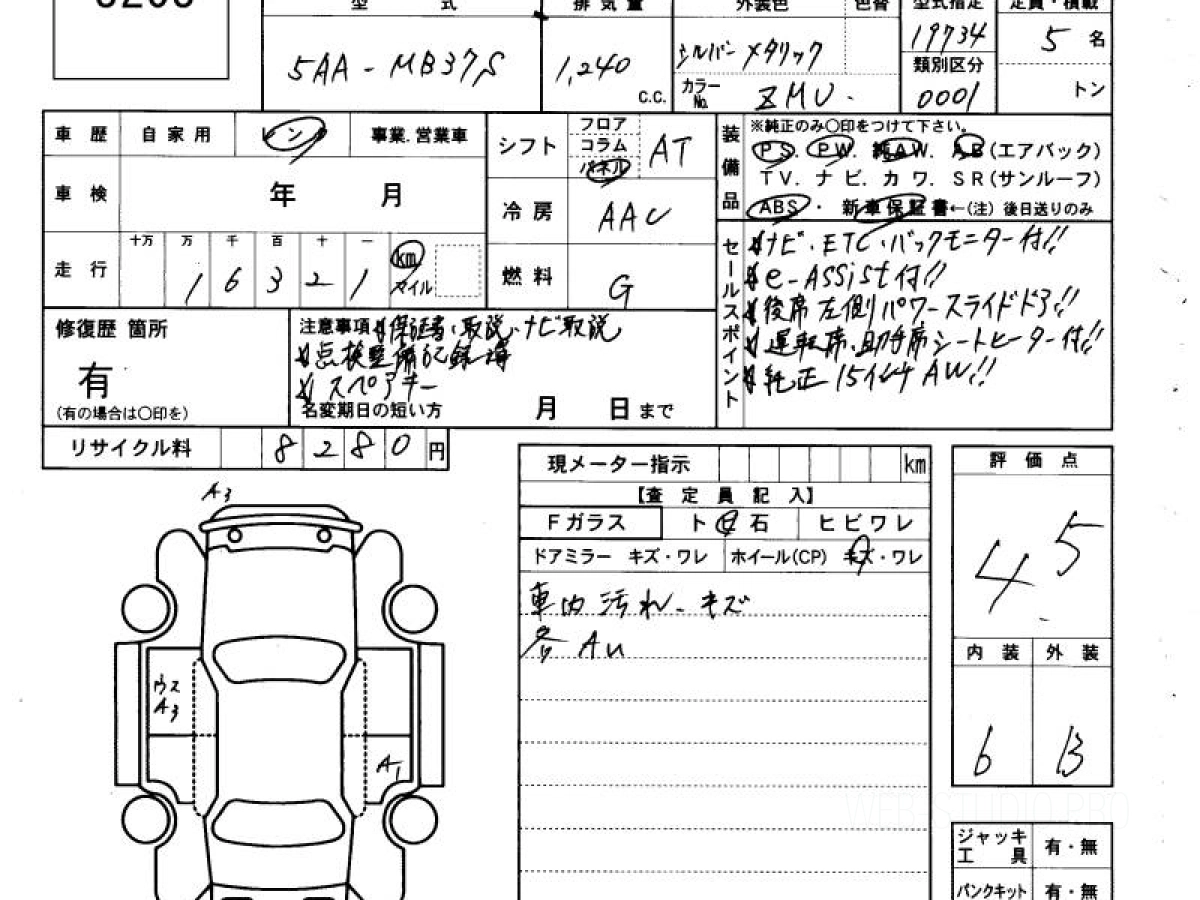 型 式
排 気 量
外装色
色替
型式指定
定員・積載
5AA-MB37S
1,240
C.C.
シルバーメタリック
カラーNo.
ZMU.
19734
類別区分
0001
5 名
トン
車 歴
自 家 用
レンタ
事業.営業車
車 検
年 月
走 行
十万 万 千 百 十 一
1 6 3 2 1
km
マイル
シフト
フロア
コラム
パネル
AT
冷 房
AAC
燃 料
G
装備品
※純正のみ〇印をつけて下さい。
PS. PW. 純AW. AB(エアバック)
TV. ナビ. カワ. SR(サンルーフ)
ABS ・ 新車保証書←(注) 後日送りのみ
セールスポイント
ナビ・ETC・バックモニター付!!
e-ASSist付!!
後席左側パワースライドドア!!
運転席・助手席シートヒーター付!!
純正15インチAW!!
修復歴 箇所
有
(有の場合は〇印を)
注意事項
保証書・取説・ナビ取説
点検整備記録簿
スペアキー
名変期日の短い方
月 日まで
リサイクル料
8 2 8 0 円
現メーター指示
km
【査 定 員 記 入】
Fガラス
ト ビ 石
ヒビワレ
ドアミラー キズ・ワレ
ホイール(CP) キズ・ワレ
車内汚れ・キズ
各 AU
評 価 点
4.5
内 装
外 装
6
B
ジャッキ
工 具
有・無
パンクキット
有・無
A3
ウス
A3
A1
WEB STUDIO PRO